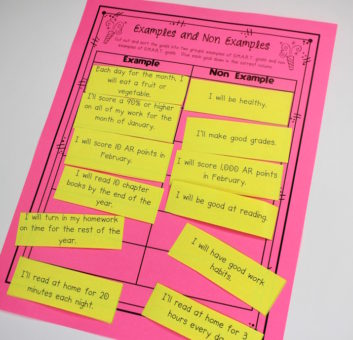 Examples and Non Examples
Cut out and sort the goals into two groups: examples of S.M.A.R.T. goals and non
examples of S.M.A.R.T. goals. Glue each goal down in the correct column.
Example
Non Example
Each day for the month, I
will eat a fruit or
vegetable.
I will be healthy.
I'll score a 90% or higher
on all of my work for the
month of January.
I'll make good grades.
I will score 10 AR points in
February.
I will score 1,000 AR points
in February.
I will read 10 chapter
books by the end of the
year.
I will be good at reading.
I will turn in my homework
on time for the rest of the
year.
I will have good work
habits.
I'll read at home for 20
minutes each night.
I'll read at home for 3
hours every day